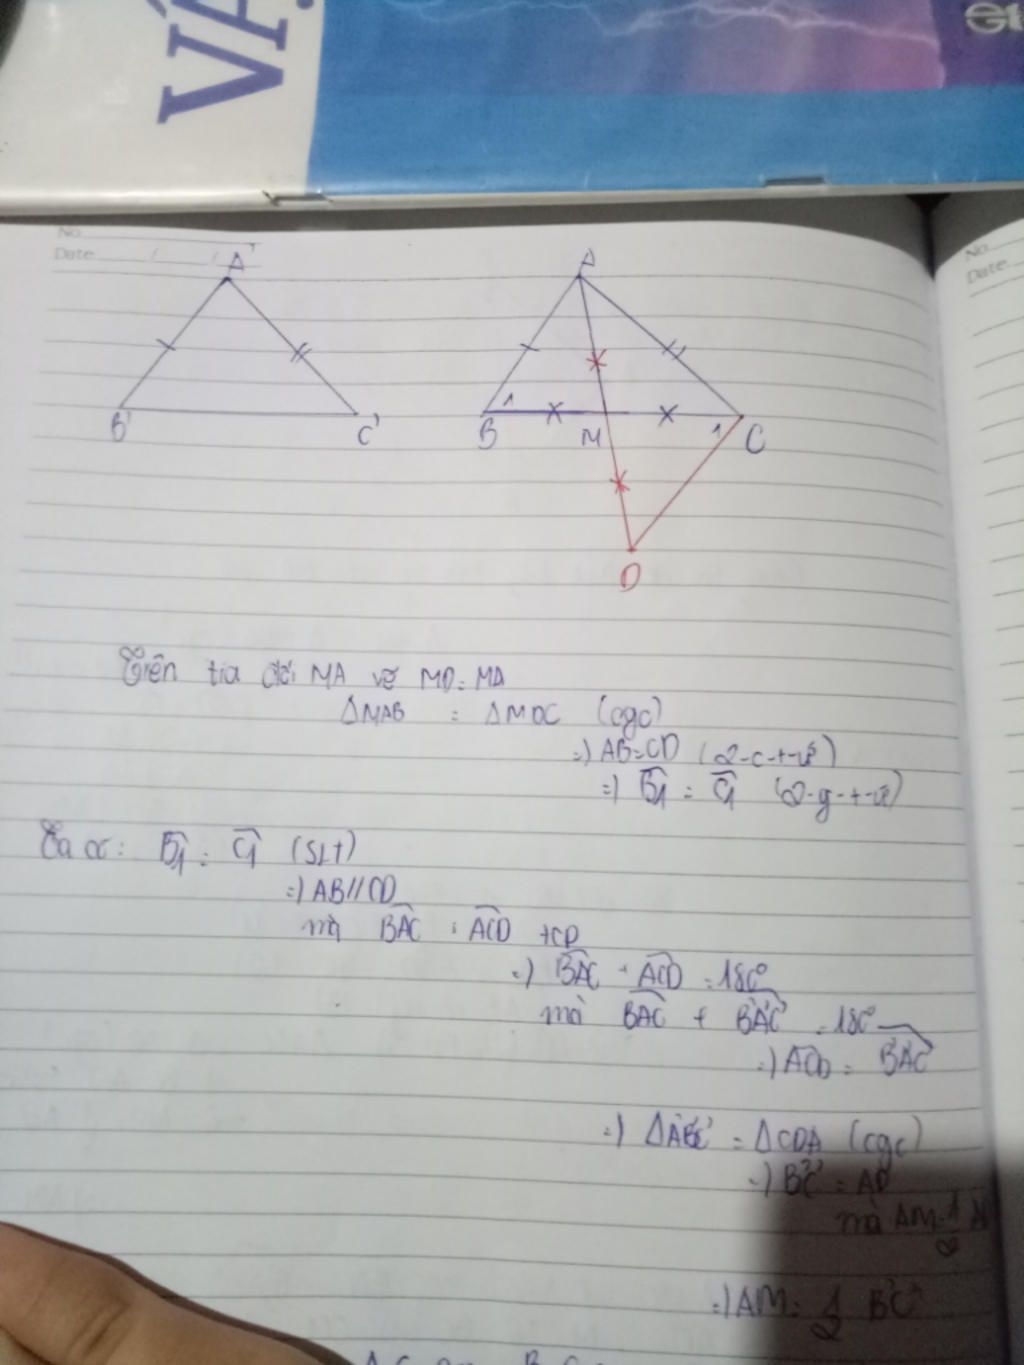 VẬ
No
Date
No
Date
A'
B'
C'
A
B
1
M
1
C
D
Trên tia đối MA vẽ MD = MA
ΔMAB = ΔMDC (cgc)
=) AB=CD (2-c-t-ư)
=) B̂1 = Ĉ1 (2-g-t-ư)
Ta có: B̂1 = Ĉ1 (SLT)
=) AB//CD
mà BAC , ACD TCP
=) BAC + ACD = 180°
mà BAC + B'A'C' = 180°
=) ACD = B'A'C'
=) ΔA'B'C' = ΔCDA (cgc)
=) B'C' = AD
mà AM = 1/2
=) AM = 1/2 B'C'